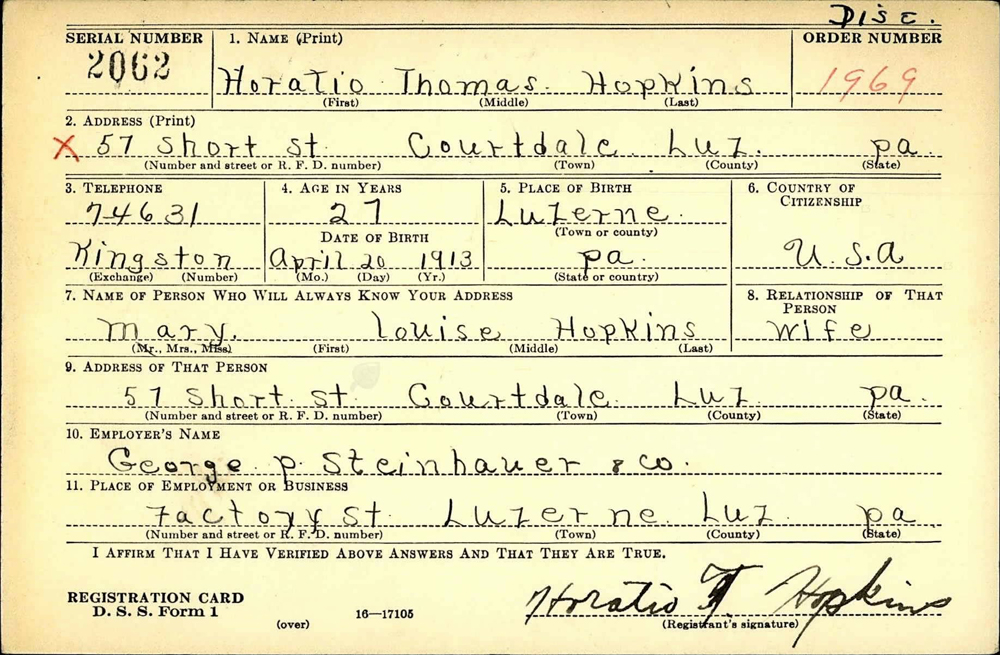 DISC.
SERIAL NUMBER 1. NAME (Print) ORDER NUMBER
2062 Horatio Thomas. Hopkins 1969
(First) (Middle) (Last)
2. ADDRESS (Print)
X 57 Short St. Courtdale. Luz. pa.
(Number and street or R. F. D. number) (Town) (County) (State)
3. TELEPHONE 4. AGE IN YEARS 5. PLACE OF BIRTH 6. COUNTRY OF CITIZENSHIP
74631 27 Luzerne.
DATE OF BIRTH (Town or county)
Kingston April 20 1913 pa. U.S.A
(Exchange) (Number) (Mo.) (Day) (Yr.) (State or country)
7. NAME OF PERSON WHO WILL ALWAYS KNOW YOUR ADDRESS 8. RELATIONSHIP OF THAT PERSON
Mary. Louise Hopkins Wife
(Mr., Mrs., Miss) (First) (Middle) (Last)
9. ADDRESS OF THAT PERSON
57 Short. St. Courtdale. Luz pa.
(Number and street or R. F. D. number) (Town) (County) (State)
10. EMPLOYER'S NAME
George. P. Steinhauer & Co.
11. PLACE OF EMPLOYMENT OR BUSINESS
Factory St. Luzerne. Luz. pa
(Number and street or R. F. D. number) (Town) (County) (State)
I AFFIRM THAT I HAVE VERIFIED ABOVE ANSWERS AND THAT THEY ARE TRUE.
REGISTRATION CARD
D. S. S. Form 1 16—17105 Horatio T. Hopkins
(over) (Registrant's signature)